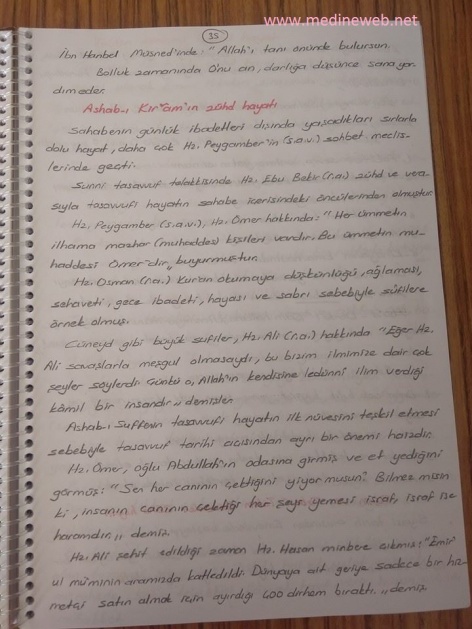 www.medineweb.net
35
İbn Hanbel Müsned'inde: "Allah'ı tanı önünde bulursun.
Bolluk zamanında O'nu an, darlığa düşünce sana yar-
dım eder.
Ashab-ı Kir'am'ın zühd hayatı
Sahabenin günlük ibadetleri dışında yaşadıkları sırlarla
dolu hayat, daha çok Hz. Peygamber'in (s.a.v.) sohbet meclis-
lerinde geçti.
Sünni tasavvuf telakkisinde Hz. Ebu Bekir (r.a.) zühd ve vera
sıyla tasavvufi hayatın sahabe içerisindeki öncülerinden olmuştur.
Hz. Peygamber (s.a.v.), Hz. Ömer hakkında: "Her ümmetin
ilhama mazhar (muheddes) kişileri vardır. Bu ümmetin mu-
haddesi Ömer'dir,, buyurmuştur.
Hz. Osman (r.a.) Kur'an okumaya düşkünlüğü, ağlaması,
sehaveti, gece ibadeti, hayası ve sabrı sebebiyle sûfilere
örnek olmuş.
Cüneyd gibi büyük sufiler, Hz. Ali (r.a.) hakkında "Eğer Hz.
Ali savaşlarla meşgul olmasaydı, bu bizim ilmimize dair çok
şeyler söylerdi. Çünkü o, Allah'ın kendisine ledünni ilim verdiği
kâmil bir insandır,, demişler.
Ashab-ı Suffenin tasavvufi hayatın ilk nüvesini teşkil etmesi
sebebiyle tasavvuf tarihi açısından ayrı bir önemi haizdir.
Hz. Ömer, oğlu Abdullah'ın odasına girmiş ve et yediğini
görmüş: "Sen her canının çektiğini yiyor musun? Bilmez misin
ki, insanın canının çektiği her şeyi yemesi israf, israf ise
haramdır,, demiş.
Hz. Ali şehit edildiği zaman Hz. Hasan minbere çıkmış: "Emir
ul müminin aramızda katledildi. Dünyaya ait geriye sadece bir hiz-
metçi satın almak için ayırdığı 400 dirhem bıraktı.,, demiş